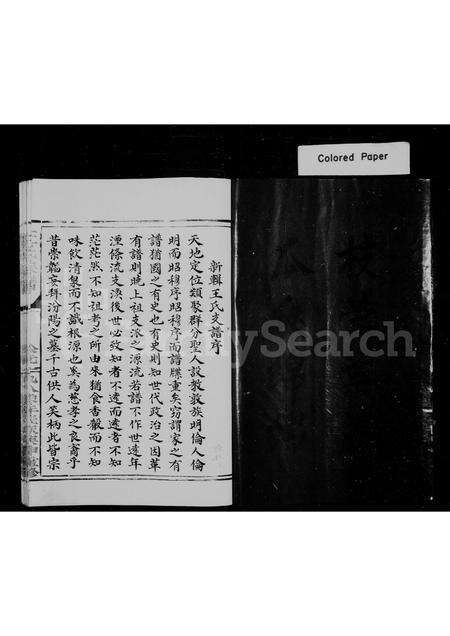 Colored Paper
新輯王氏支譜序
天地定位類聚群分聖人設教敦族明倫人倫
明而昭穆序昭穆序而譜牒重矣竊謂家之有
譜猶國之有史也有史則知世代政治之因革
有譜則曉上祖支派之源流若譜不作世遠年
湮條流支渙後世必致知者不透而透者不知
茫茫然不知祖者之所由來猶食香穀而不知
味飲清泉而不識根源也奚為慈孝之良裔乎
昔崇韜妄拜汾陽之墓千古供人笑柄此皆宗
MySearch